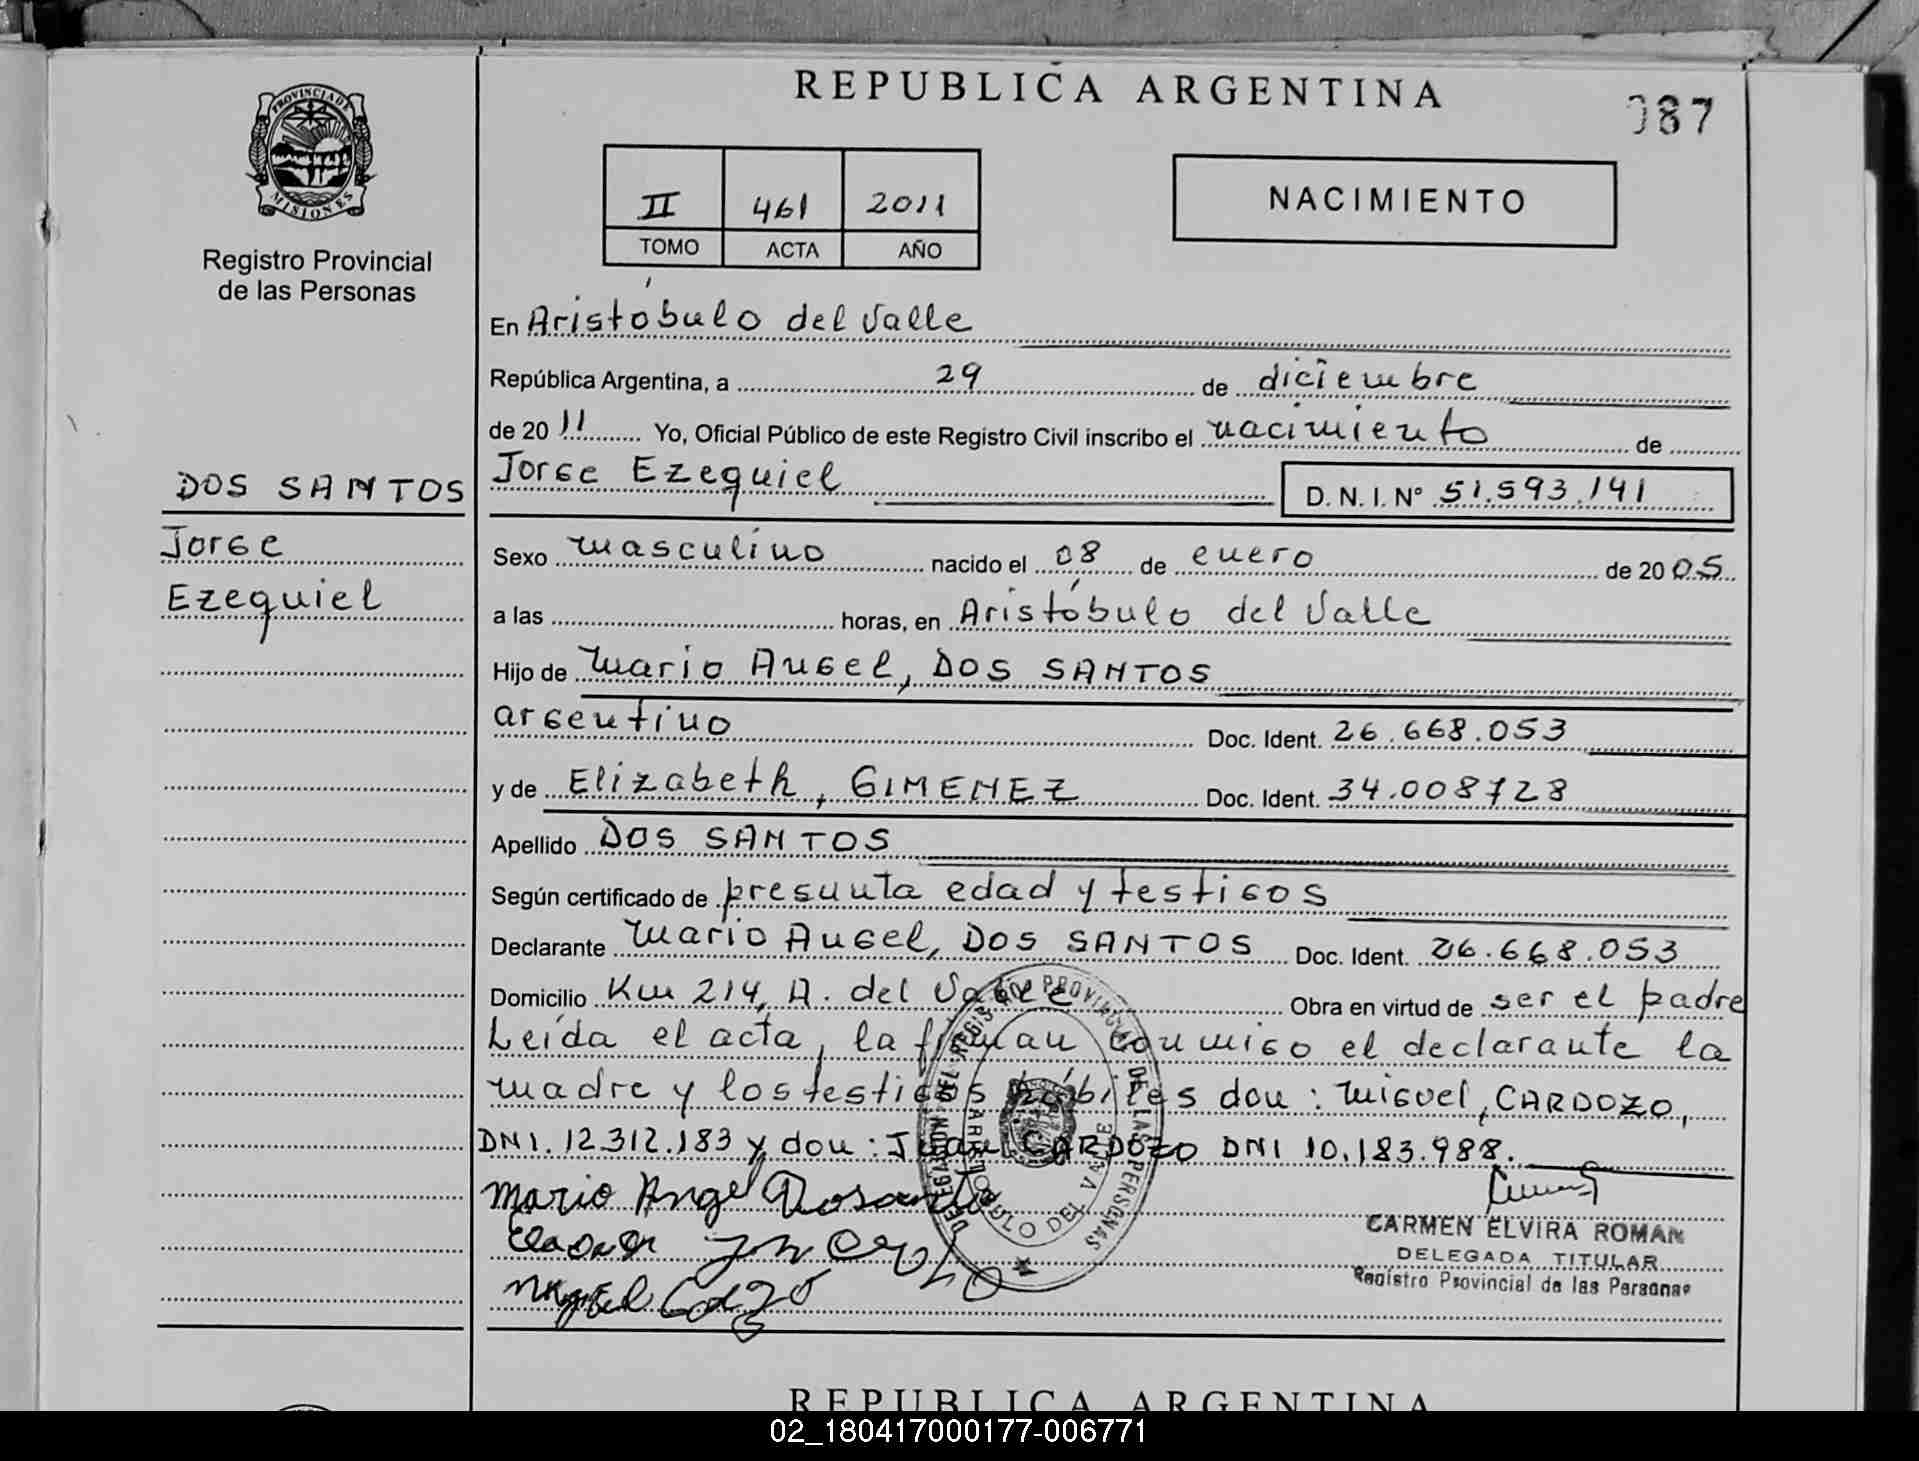 REPUBLICA ARGENTINA
087
PROVINCIA DE MISIONES
Registro Provincial
de las Personas
II 461 2011
TOMO ACTA AÑO
NACIMIENTO
En Aristóbulo del Valle
República Argentina, a 29 de diciembre
de 2011 Yo, Oficial Público de este Registro Civil inscribo el nacimiento de
DOS SANTOS
Jorge
Ezequiel
Jorge Ezequiel D. N. I. Nº 51.593.141
Sexo masculino nacido el 08 de enero de 2005
a las horas, en Aristóbulo del Valle
Hijo de Mario Angel, DOS SANTOS
argentino Doc. Ident. 26.668.053
y de Elizabeth, GIMENEZ Doc. Ident. 34.008728
Apellido DOS SANTOS
Según certificado de presunta edad y testigos
Declarante Mario Angel, DOS SANTOS Doc. Ident. 26.668.053
Domicilio Km 214, A. del Valle Obra en virtud de ser el padre
Leída el acta, la firman conmigo el declarante la
madre y los testigos hábiles don : Miguel, CARDOZO,
DNI. 12.312.183 y don : Juan CARDOZO DNI 10.183.988.
Mario Angel Dosantos
Miguel
DELEGACION DEL REGISTRO PROVINCIAL DE LAS PERSONAS
ARISTOBULO DEL VALLE
CARMEN ELVIRA ROMAN
DELEGADA TITULAR
Registro Provincial de las Personas
REPUBLICA ARGENTINA
02_180417000177-006771